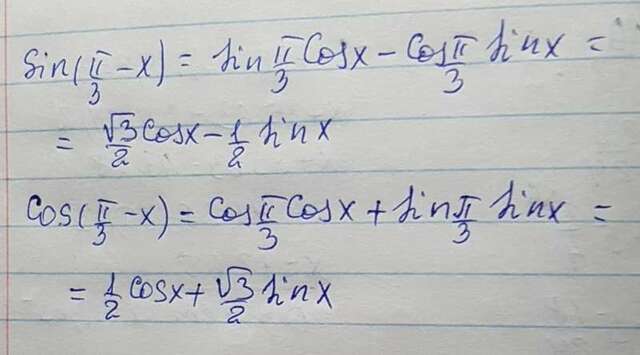 sin(π/3 - x) = sin π/3 cosx - cos π/3 sinx =
= √3/2 cosx - 1/2 sinx
cos(π/3 - x) = cos π/3 cosx + sin π/3 sinx =
= 1/2 cosx + √3/2 sinx